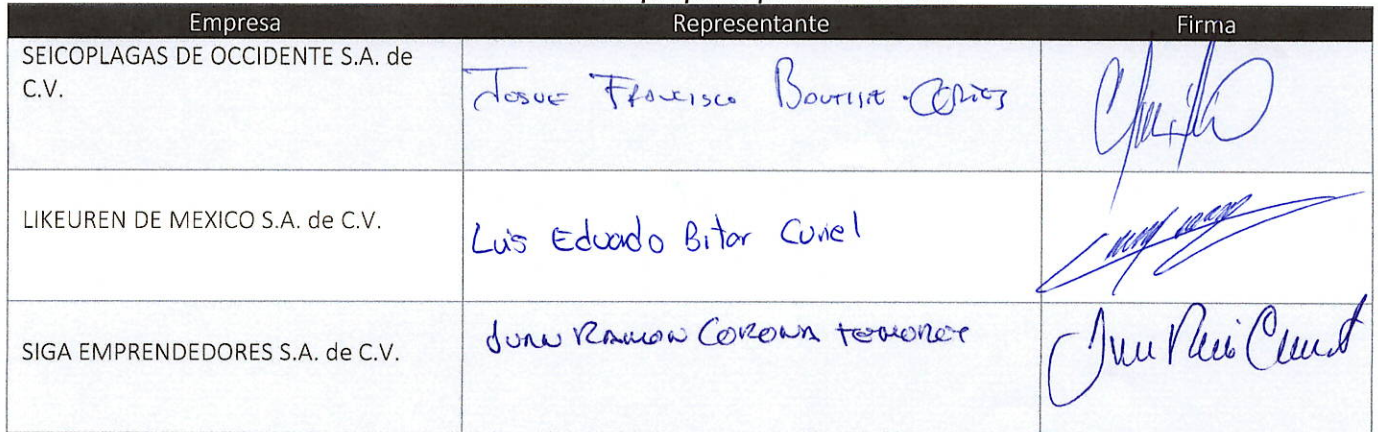 Empresa Representante Firma
SEICOPLAGAS DE OCCIDENTE S.A. de
C.V.
Josue Francisco
LIKEUREN DE MEXICO S.A. de C.V.
Luis Eduardo Bitar Curiel
SIGA EMPRENDEDORES S.A. de C.V.
Juan Ramon Corona